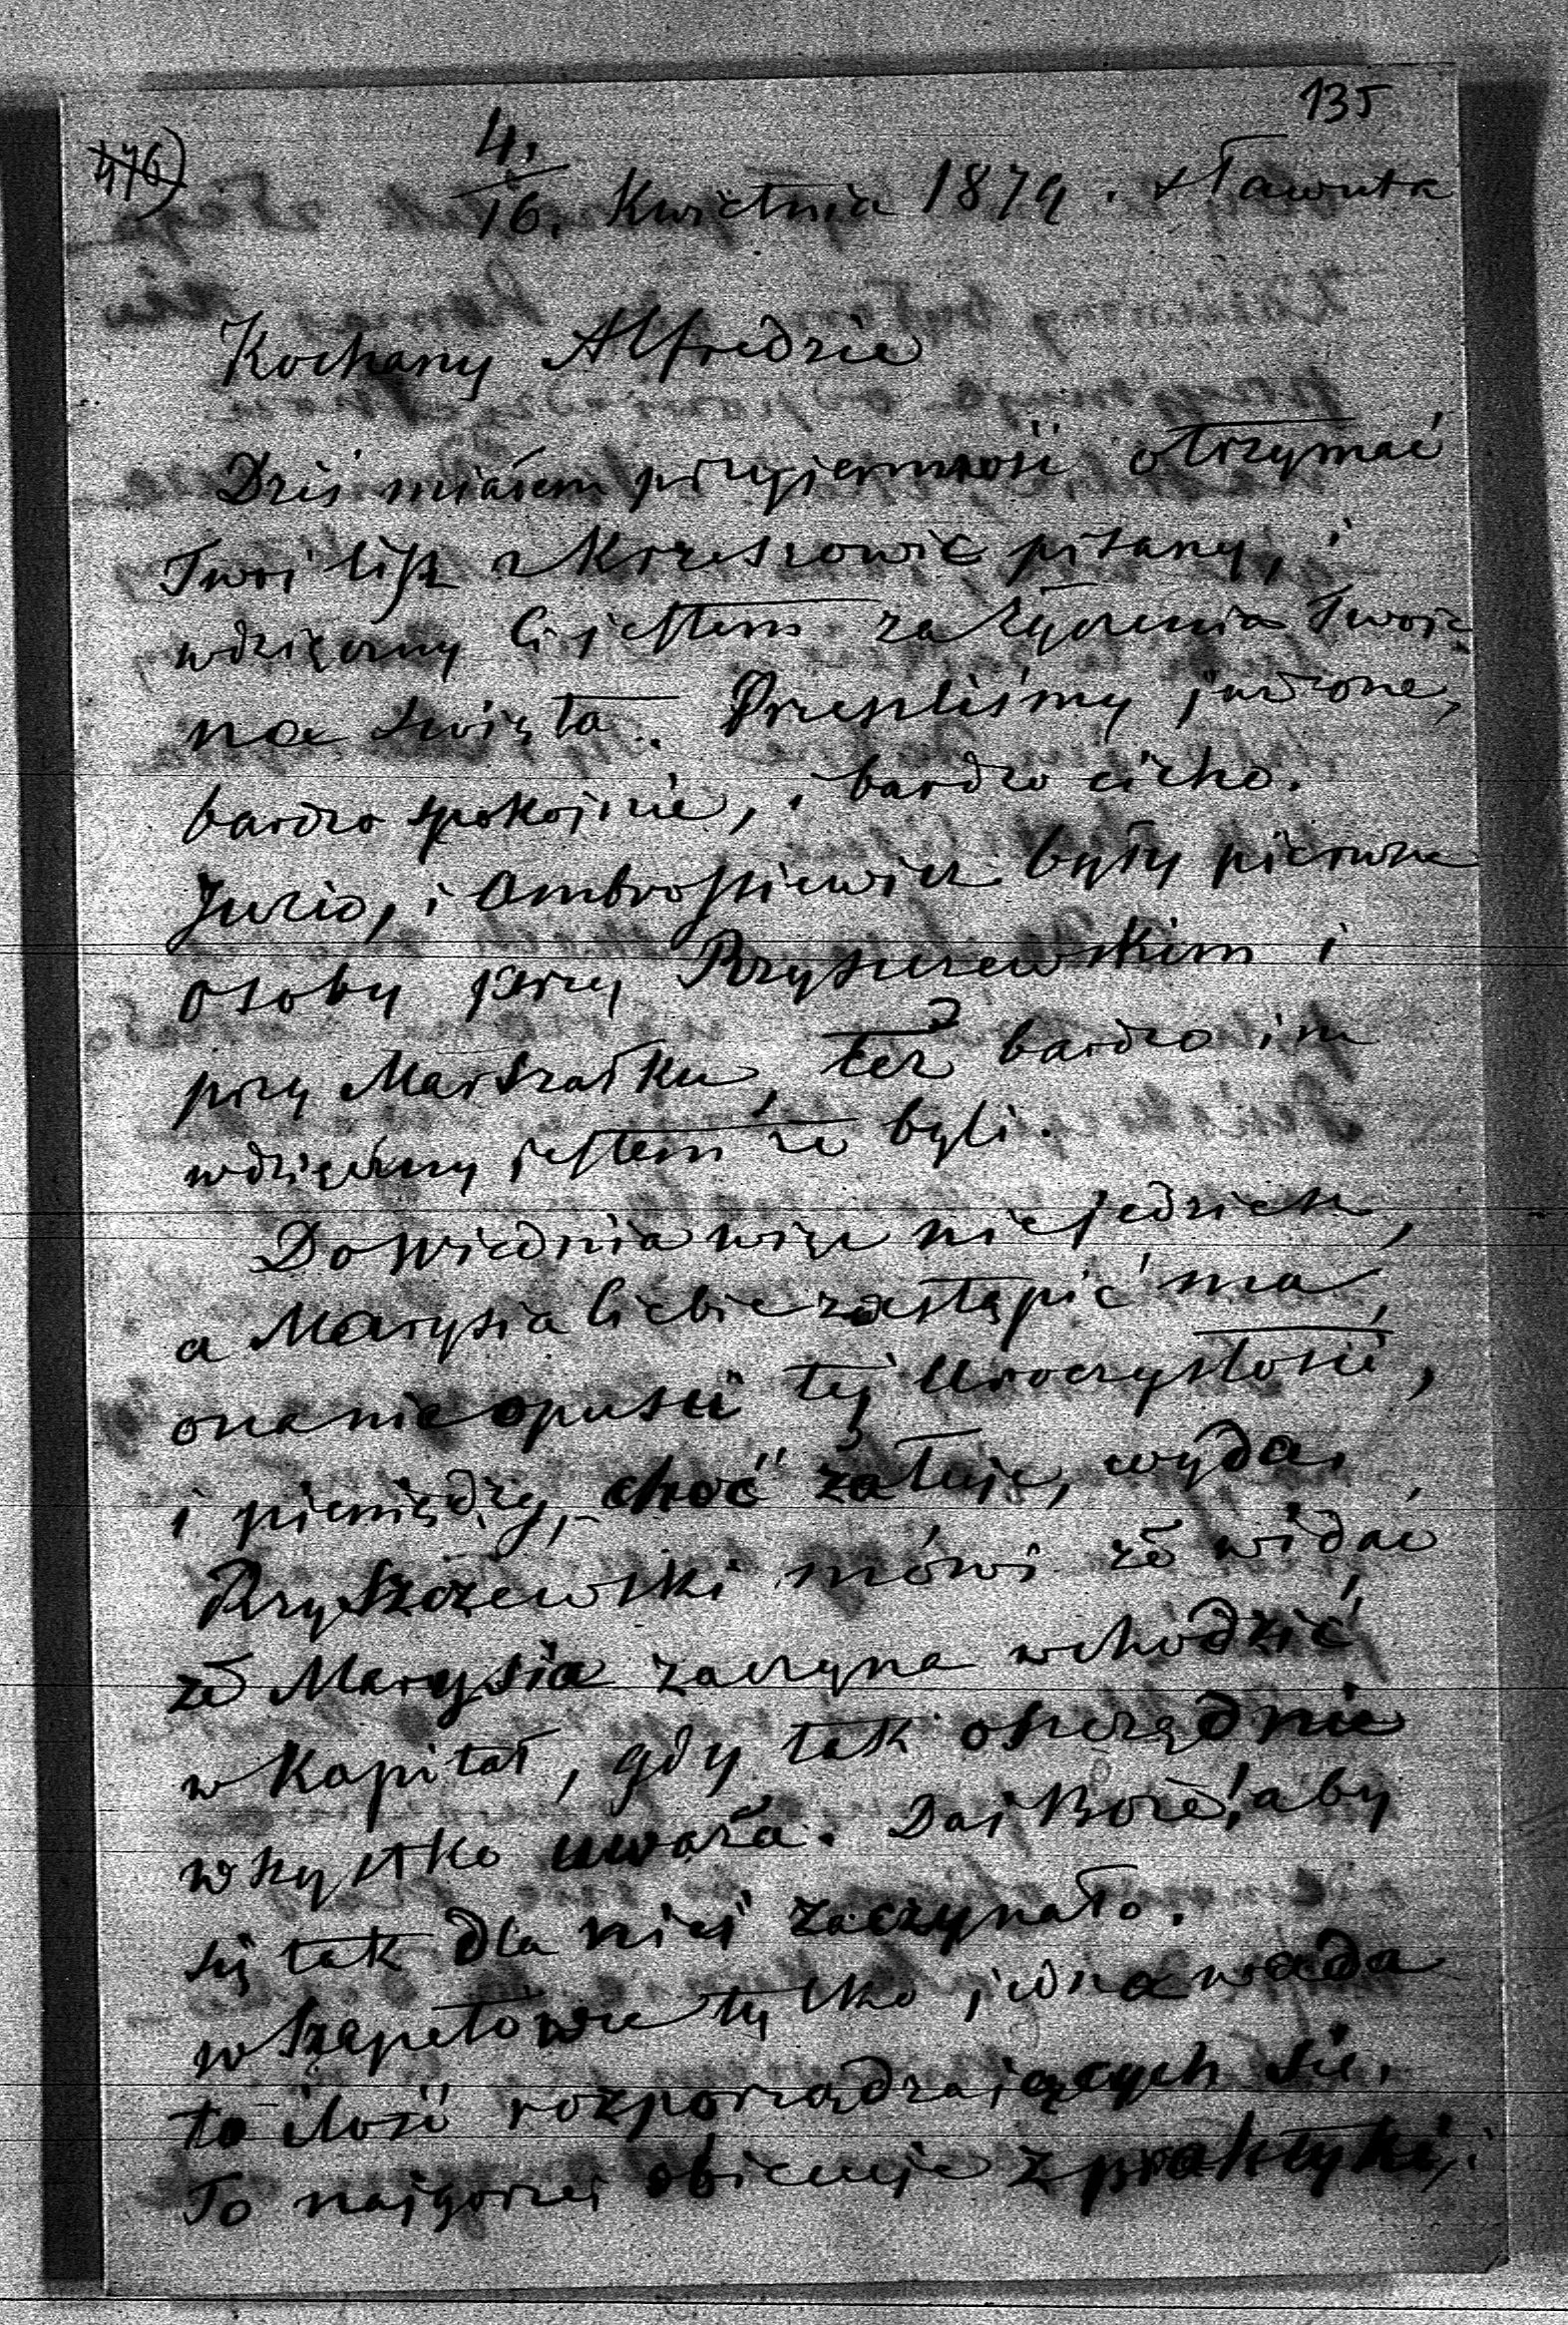 135
476)
4./16. Kwietnia 1879. Sławuta
Kochany Alfredzie
Dziś miałem przyjemność otrzymać
Twój list z Krzeszowic pisany, i
wdzięczny Ci jestem za życzenia Twoje
na Święta. Przeszliśmy je
bardzo spokojnie, i bardzo cicho.
Juzio, i Ambroszkiewicz były pierwsze
osoby przy Pryszczewskim i
przy Marszałku, też bardzo im
wdzięczny jestem że byli.
Do Wiednia więc nie jedziesz,
a Marysia Ciebie zastąpić ma,
ona nie opuści tej Uroczystości,
i pieniędzy, choć żałuje, wyda.
Pryszczewski mówi że widać
że Marysia zaczyna wchodzić
w Kapitał, gdy tak oszczędnie
wszystko uważa. Daj Boże! aby
się tak dla niej zaczynało.
w Szepetówce tylko jedna wada
to ilość rozporządzających się.
To najgorzej obiecuje z praktyki,